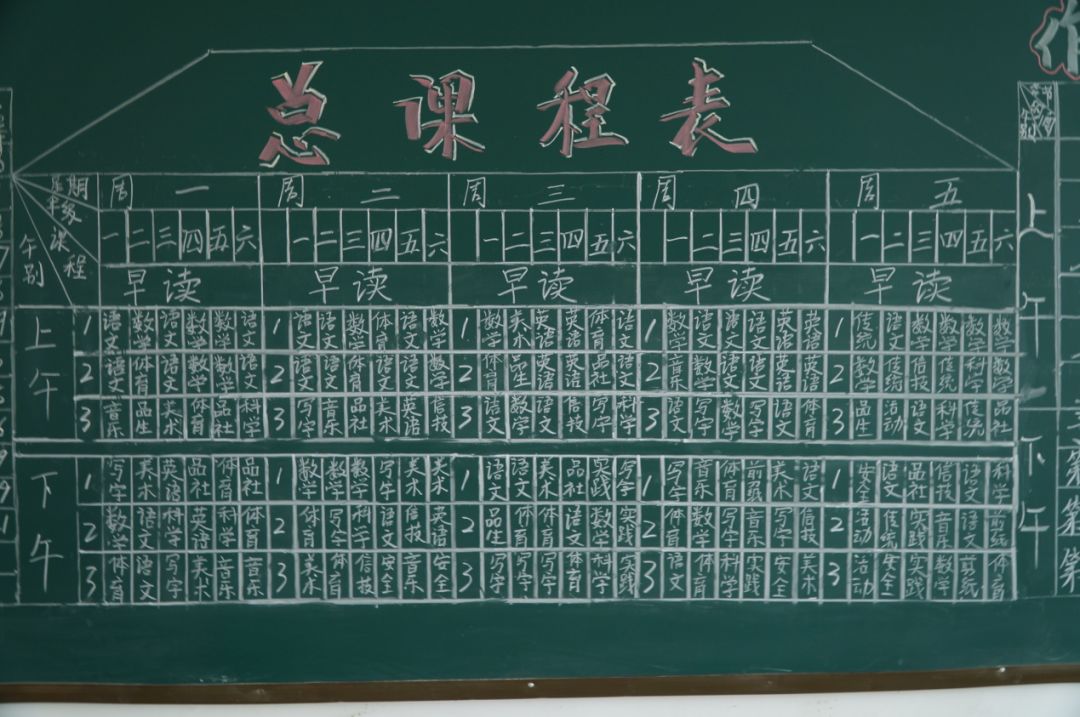 总课程表
星期 周一 周二 周三 周四 周五
年级 一 二 三 四 五 六 一 二 三 四 五 六 一 二 三 四 五 六 一 二 三 四 五 六 一 二 三 四 五 六
午别 课程 早读 早读 早读 早读 早读
上午 1 语文 数学 语文 数学 数学 语文 1 语文 语文 数学 体育 语文 数学 1 数学 美术 英语 英语 体育 语文 1 数学 语文 语文 语文 英语 英语 1 传统 语文 数学 数学 数学 数学
2 语文 体育 语文 数学 数学 语文 2 语文 语文 体育 语文 语文 数学 2 体育 品生 英语 英语 品社 2 音乐 数学 语文 语文 英语 英语 2 数学 传统 信技 传统 科学 数学
3 音乐 品生 美术 体育 品社 科学 3 写字 音乐 品社 美术 英语 信技 3 语文 数学 语文 信技 写字 科学 3 语文 写字 数学 写字 语文 体育 3 品生 活动 语文 科学 传统 品社
下午 1 写字 美术 英语 品社 体育 品社 1 数学 数学 数学 写字 美术 美术 1 语文 语文 美术 品社 实践 写字 1 写字 音乐 体育 美术 语文 1 安全 语文 品社 信技 语文 科学
2 数学 语文 科学 英语 科学 体育 2 体育 写字 科学 语文 信技 英语 2 品生 体育 体育 语文 数学 实践 2 体育 数学 写字 音乐 写字 信技 2 活动 传统 实践 音乐 语文
3 体育 语文 写字 美术 音乐 音乐 3 美术 体育 信技 安全 音乐 安全 3 写字 写字 写字 体育 科学 实践 3 语文 体育 科学 实践 安全 美术 3 活动 安全 实践 数学 剪纸 体育
上午
下午
第
第